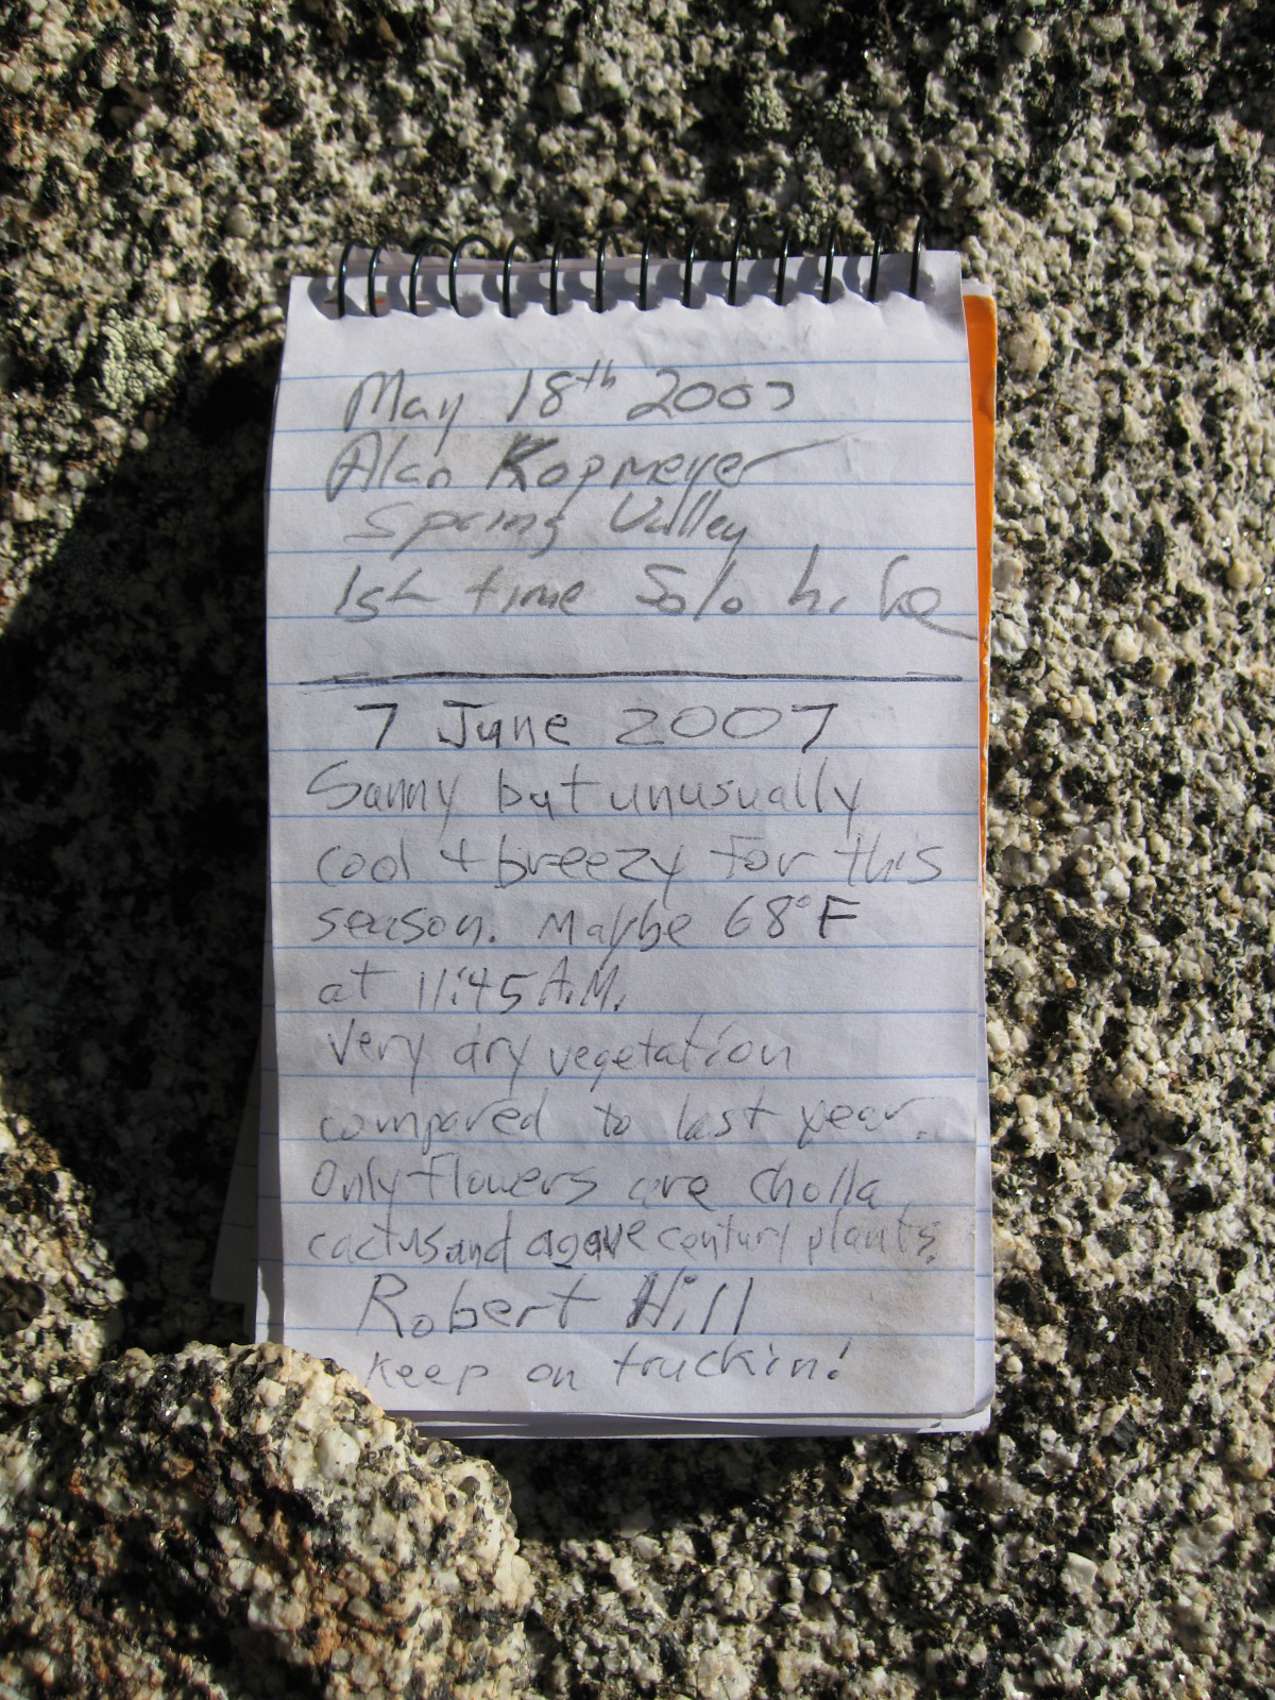 May 18th 2007
Alan Kopmeyer
Spring Valley
1st time Solo hike
7 June 2007
Sunny but unusually
cool + breezy for this
season. Maybe 68°F
at 11:45 A.M.
Very dry vegetation
compared to last year.
Only flowers are Cholla
cactus and agave century plants.
Robert Hill
Keep on truckin!